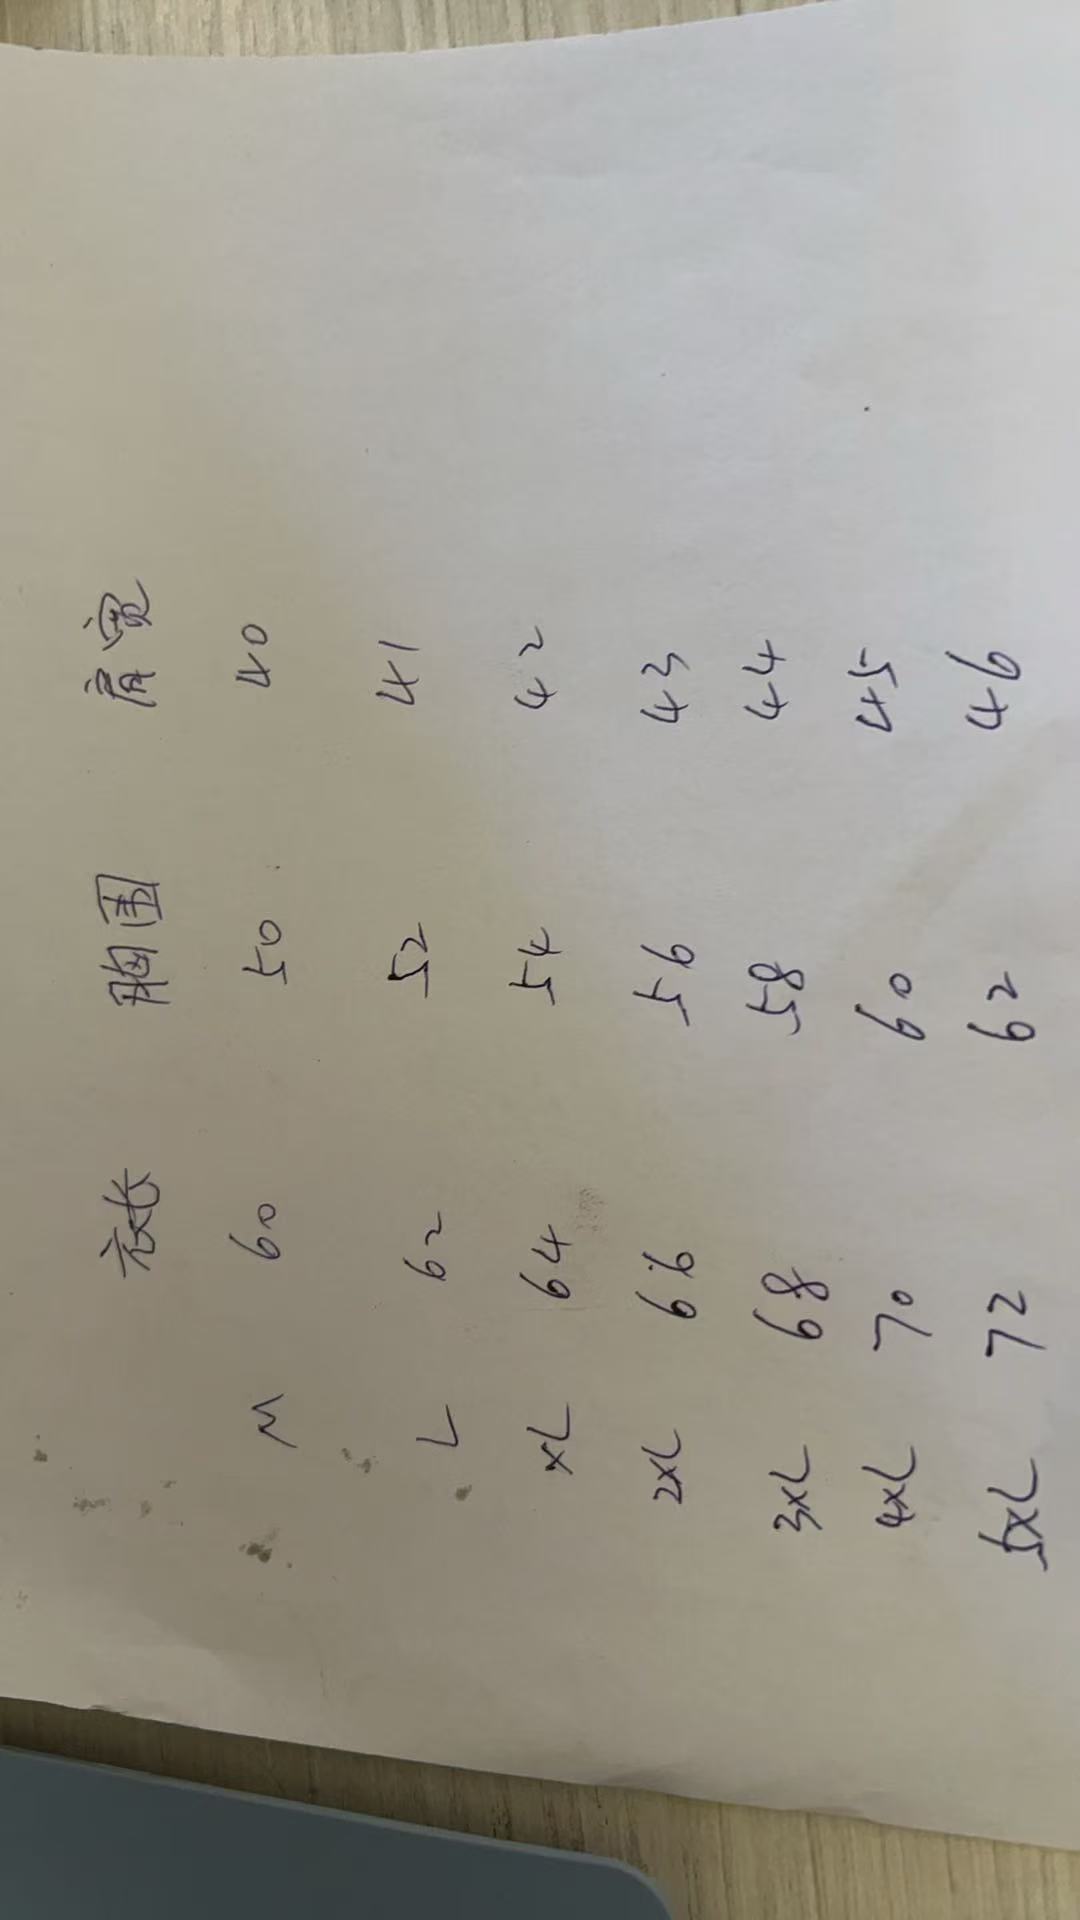 衣长 胸围 肩宽
M 60 50 40
L 62 52 41
XL 64 54 42
2XL 66 56 43
3XL 68 58 44
4XL 70 60 45
5XL 72 62 46